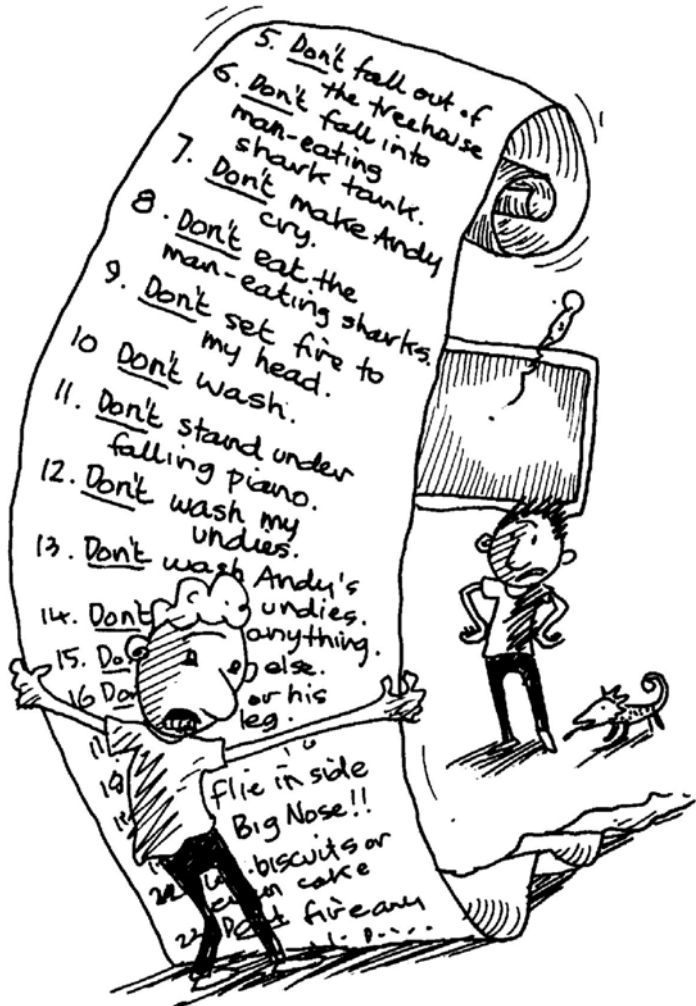 5. Don't fall out of
the treehouse
6. Don't fall into
man-eating
shark tank.
7. Don't make Andy
cry.
8. Don't eat the
man-eating sharks.
9. Don't set fire to
my head.
10 Don't wash.
11. Don't stand under
falling piano.
12. Don't wash my
undies.
13. Don't wash Andy's
undies.
14. Don't
anything.
15.
else.
16
or his
leg.
flie in side
Big Nose!!
biscuits or
cake
fire any